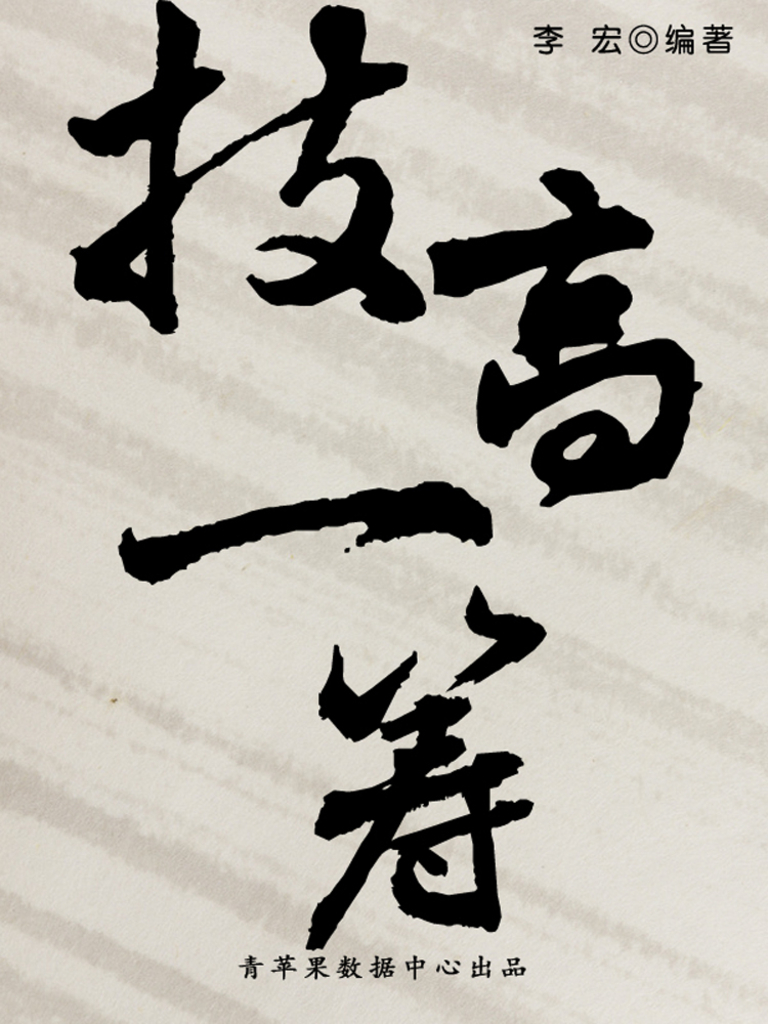 李 宏◎编著
技高
一
筹
青苹果数据中心出品